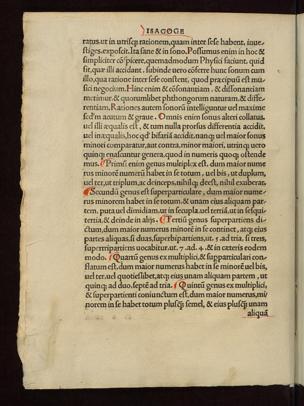 ISAGOGE
ratus, ut in utrisq; rationem, quam inter sese habent, inue/
stiges, exposcit. Ita sane & in sono. Possumus enim in hoc &
simpliciter cōspicere, quemadmodum Physici faciunt, quid
sit, quæ illi accidant. subinde uero cōferre hunc sonum cum
illo, qua ratione inter sese constent, quod præcipuū est mu/
sici negocium. Hinc enim & cōsonantiam, & dissonantiam
metimur. & quorumlibet phthongorum naturam, & diffe/
rentiam. Rationes autem sonorū intelliguntur uel maxime
sed'm acutum & graue. Omnis enim sonus alteri collatus,
uel illi æqualis est, & tum nulla prorsus differentia accidit,
uel inæqualis, hocq; bifariā accidit. nancq; uel maior sonus
minori comparatur, aut contra, minor maiori, utrinq; uero
quinq; enascuntur genera, quod in numeris quoq; ostende
mus. Primū enim genus multiplex est, dum maior nume
rus minorem numerū habet in se totum, uel bis, ut duplum,
uel ter, ut triplum, ac deinceps, nihilq; deest, nihil exuberat.
Secundū genus est superparticulare, dum maior nume/
rus minorem habet in se totum, & unam eius aliquam par/
tem. puta uel dimidiam, ut in sescupla. uel tertiā, ut in sesqui
tertia, & deinde in alijs. Tertiū genus superpartiens di/
ctum, dum maior numerus minorē in se continet, atq; eius
partes aliquas, si duas, superbipartiens, ut 5 ad tria. si tres,
supertripartiens uocabitur. ut .7. ad .4. & in cæteris eodem
modo. Quartū genus ex multiplici, & suppparticulari con/
flatum est. dum maior numerus habet in se minorē uel bis,
uel ter, uel quotieslibet, atq; eius unam aliquam partem, ut
quinq; ad duo. septē ad tria. Quintū genus ex multiplici,
& superpartienti coniunctum est, dum maior numerus, mi/
norem in se habet totum plusq̃ semel, & eius plusq̃ unam
aliquā